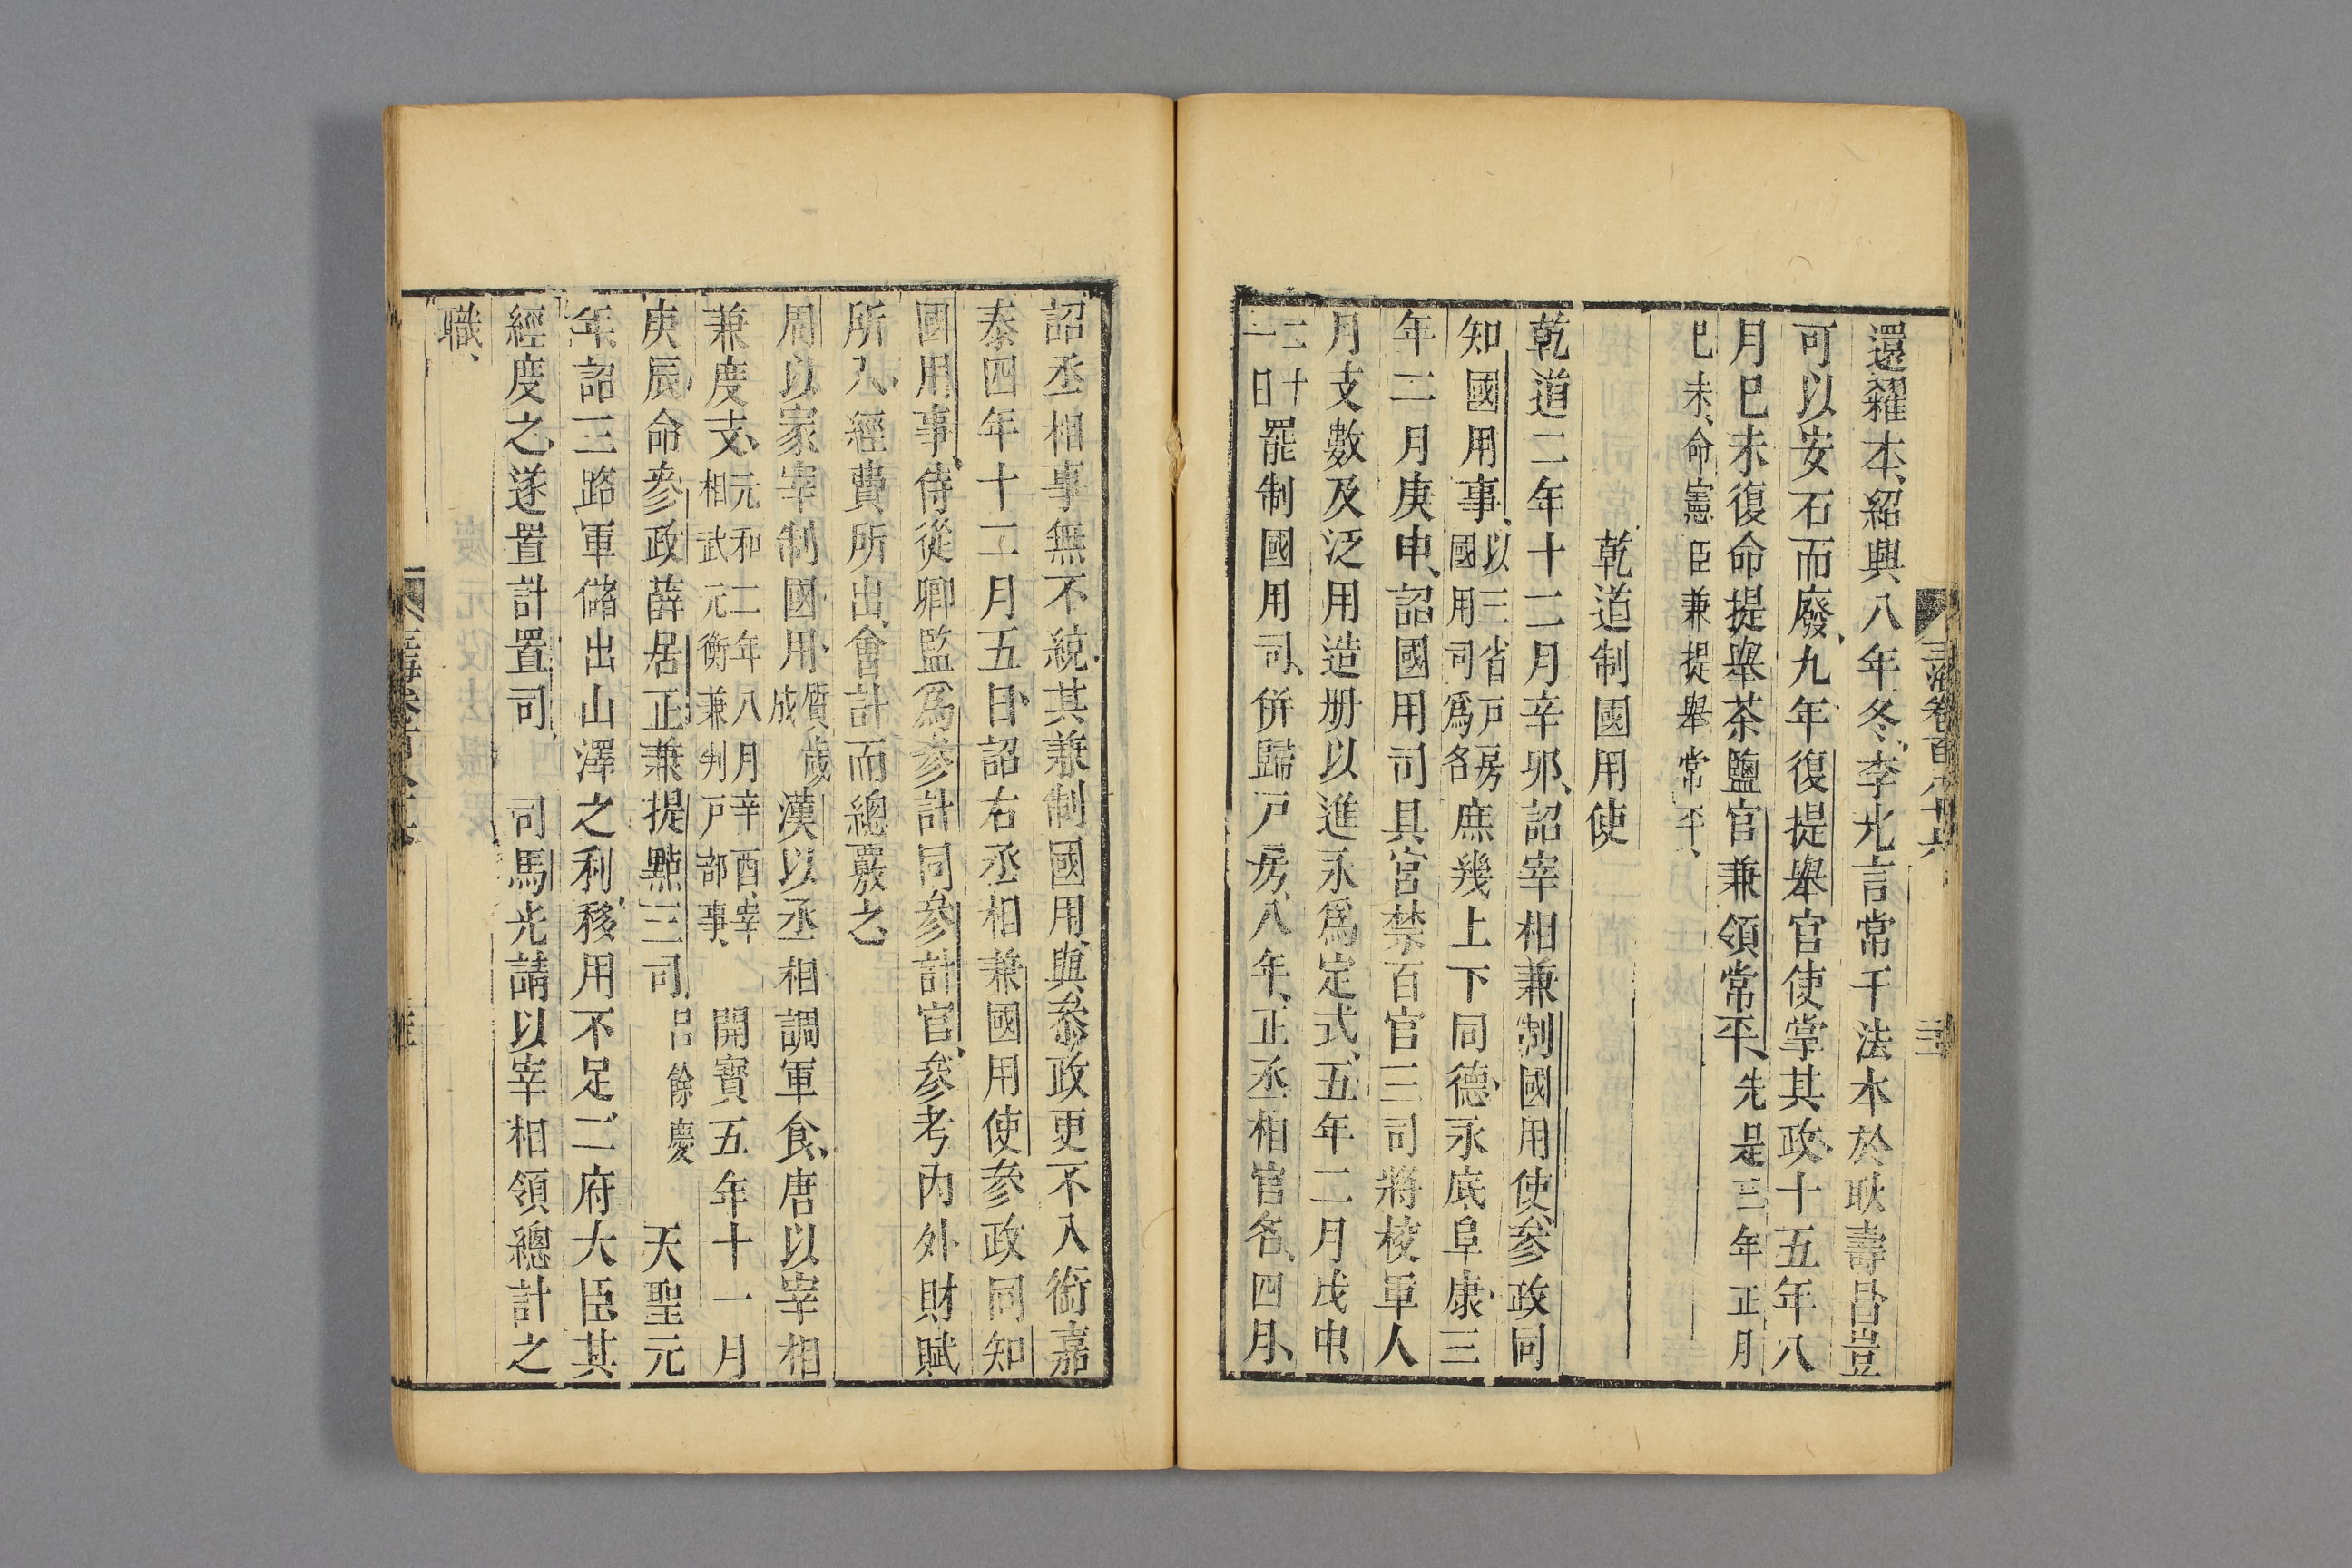 玉海卷百八十六
還糴本、紹興八年冬、李光言常平法本於耿壽昌豈
可以安石而廢、九年復提舉官使掌其政、十五年八
月巳未復命提舉茶鹽官兼領常平、先是三年正月
巳未、命憲臣兼提舉常平、
乾道制國用使
乾道二年十二月辛夘、詔宰相兼制國用使、參政同
知國用事、以三省戸房國用司爲名庶幾上下同德、永底阜康、三
年二月庚申、詔國用司具宮禁百官三司將校軍人
月支數及泛用造册以進永爲定式、五年二月戊申、
二十一日罷制國用司、併歸戸房、八年、正丞相官名、四月、
詔丞相事無不統、其兼制國用與參政更不入銜嘉
泰四年十二月五日、詔右丞相兼國用使參政同知
國用事、侍從卿監爲參計同參計官、參考內外財賦
所入、經費所出、會計而總覈之、
周以家宰制國用、質歲成漢以丞相調軍食、唐以宰相
兼度支、元和二年八月辛酉、宰相武元衡兼判戸部事、開寳五年十一月
庚辰、命參政薛居正兼提點三司、呂餘慶天聖元
年詔三路軍儲出山澤之利、移用不足、二府大臣其
經度之、遂置計置司、司馬光請以宰相領總計之
職、